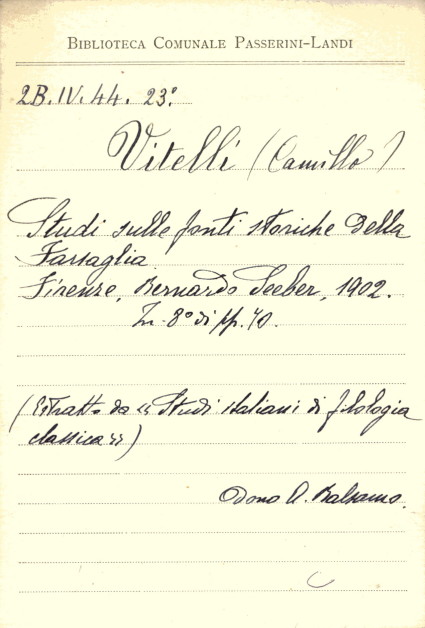 BIBLIOTECA COMUNALE PASSERINI-LANDI
2B.IV.44. 23º
Vitelli (Camillo)
Studi sulle fonti storiche della
Farsaglia
Firenze, Bernardo Seeber, 1902.
In-8º di pp. 70.
(Estratto da «Studi italiani di filologia
classica»)
Dono A. Balsamo.